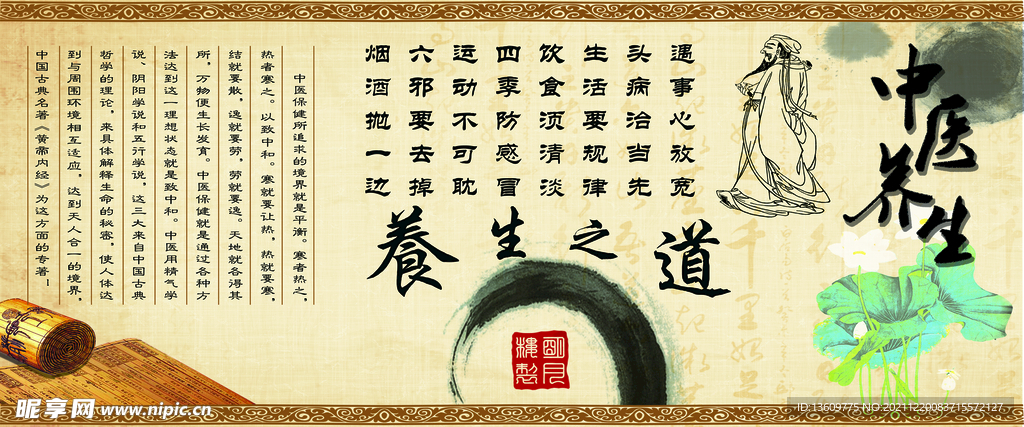 中医养生
遇事心放宽
头病治当先
生活要规律
饮食须清淡
四季防感冒
运动不可耽
六邪要去掉
烟酒抛一边
養生之道
中医保健所追求的境界就是平衡。寒者热之，
热者寒之。以致中和。寒就要让热，热就要寒，
结就要散，逸就要劳，劳就要逸。天地就各得其
所，万物便生长发育。中医保健就是通过各种方
法达到这一理想状态就是致中和。中医用精气学
说、阴阳学说和五行学说，这三大来自中国古典
哲学的理论，来具体解释生命的秘密，使人体达
到与周围环境相互适应，达到天人合一的境界，
中国古典名著《黄帝内经》为这方面的专著！
昵享网 www.nipic.cn
ID:13609775 NO:20211220083715572127